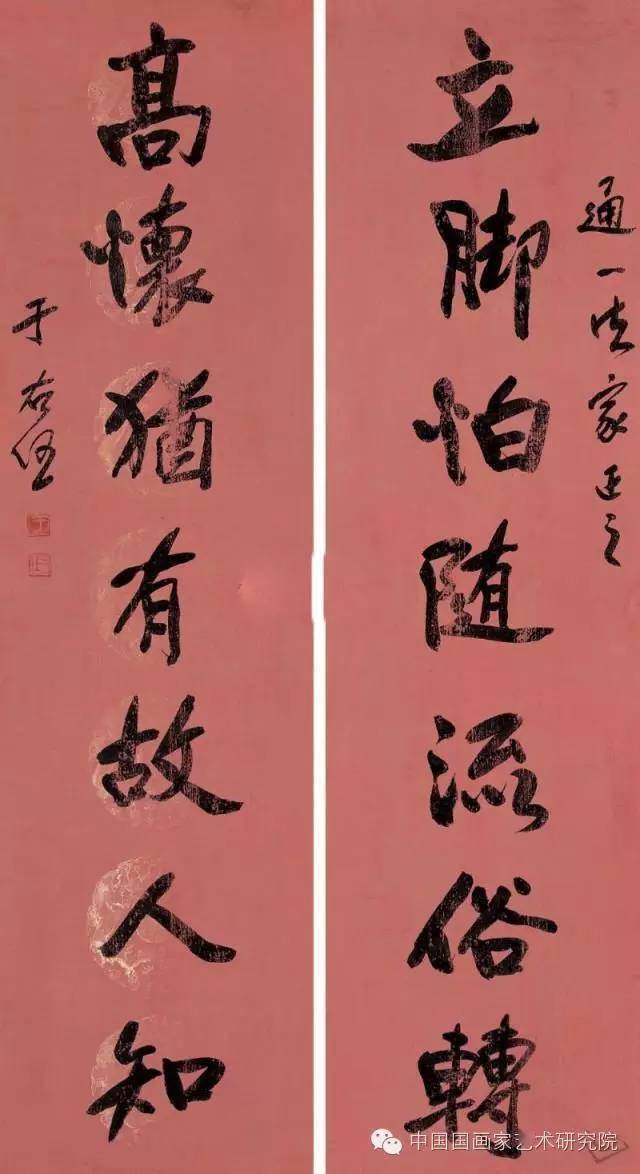 通一法家正之
立脚怕随流俗轉
髙懷猶有故人知
于右任
中国国画家艺术研究院